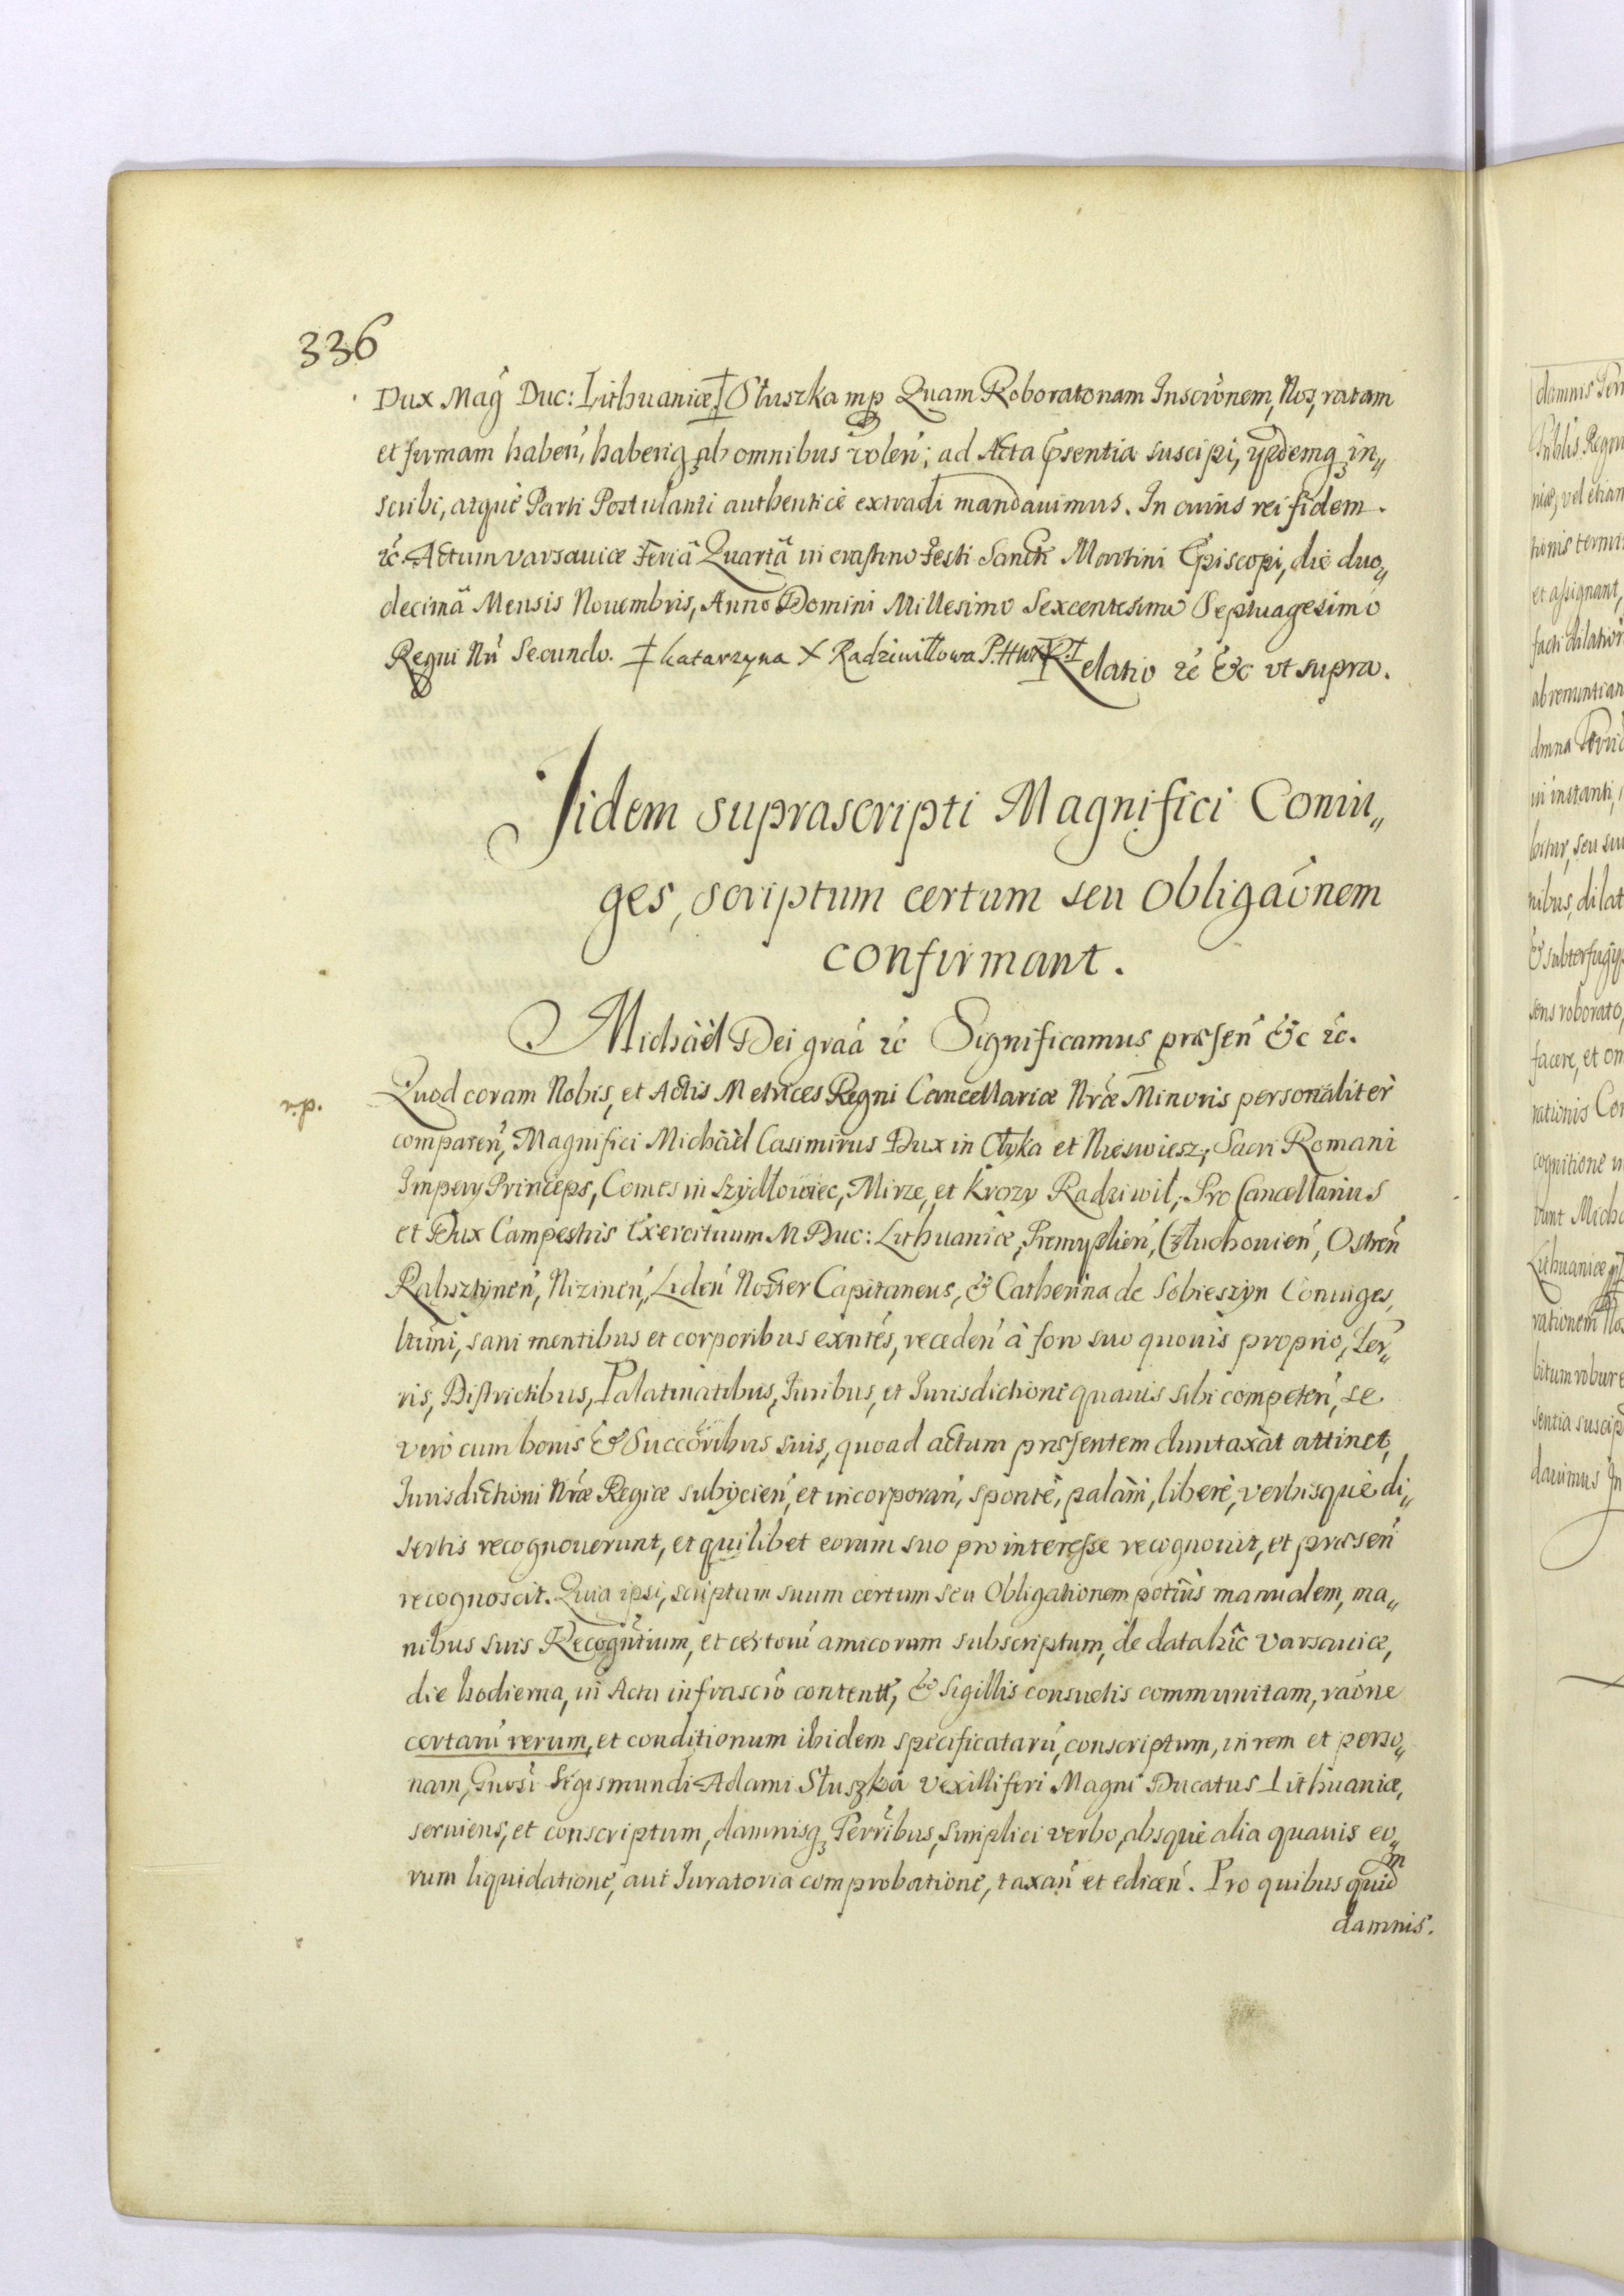 336
Dux Mag Duc: Lithuaniæ ‡ Słuszka mp Quam Roboratonam Inscrionem, Nos, ratam
et firmam haben, haberiq ab omnibus volen; ad Acta psentia suscipi, ijsdemq in„
scribi, atque Parti Postulanti authenticè extradi mandauimus. In cuius rei fidem.
etc. Actum varsauiæ Feriâ Quartâ in crastino Festi Sancti Martini Episcopi, die duo„
decimâ Mensis Nouembris, Anno Domini Millesimo Sexcentesimo Septuagesimo
Regni Nri Secundo. ‡ Katarzyna X Radziwiłłowa P. H W X L ‡ Relatio etc &c vt supra.
Iidem suprascripti Magnifici Coniu„
ges, scriptum certum seu obligaonem
confirmant.
Michaël Dei graa etc Significamus præsen &c etc.
Quod coram Nobis, et Actis Metrices Regni Cancellariæ Nræ Minoris personaliter
comparen, Magnifici Michaël Casimirus Dux in Ołyka et Nieswiesz, Sacri Romani
Impery Princeps, Comes in Szydłowiec, Mirze, et Krozy Radziwił, Pro Cancellarius
et Dux Campestris Exercituum M Duc: Lithuaniæ, Premyslien, Człuchouien, Ostren
Rabsztynen, Nizinen, Liden Noster Capitaneus, & Catherina de Sobieszyn Coniuges,
ltimi, sani mentibus et corporibus exntes, receden à foro suo quouis proprio, Ter„
ris, Districtibus, Palatinatibus, Iuribus, et Iurisdictione quauis sibi competen, se
vero cum bonis & Succoribus suis, quoad actum præsentem duntaxàt attinet,
Iurisdictioni Nræ Regiæ subijcien, et incorporan, spontè, palàm, liberè, verbisquè di„
sertis recognouerunt, et quilibet eorum suo pro interesse recognouit, et præsen
recognoscit. Quia ipsi, scriptum suum certum seu Obligationem potius manualem, ma„
nibus suis Recognitium, et certoru amicorum subscriptum, de data hîc varsauiæ,
die hodierna, in Actu infrascrio content, & Sigillis consuetis communitam, raone
certaru rerum, et conditionum ibidem specificataru, conscriptum, in rem et perso„
nam, Gnosi Sigismundi Adami Słuszka Vexilliferi Magni Ducatus Lithuaniæ,
seruiens, et conscriptum, damnisq Terribus, simplici verbo, absque alia quauis eo„
rum liquidatione, aut Iuratoria comprobatione, taxan et edicen. Pro quibus quidm
damnis.